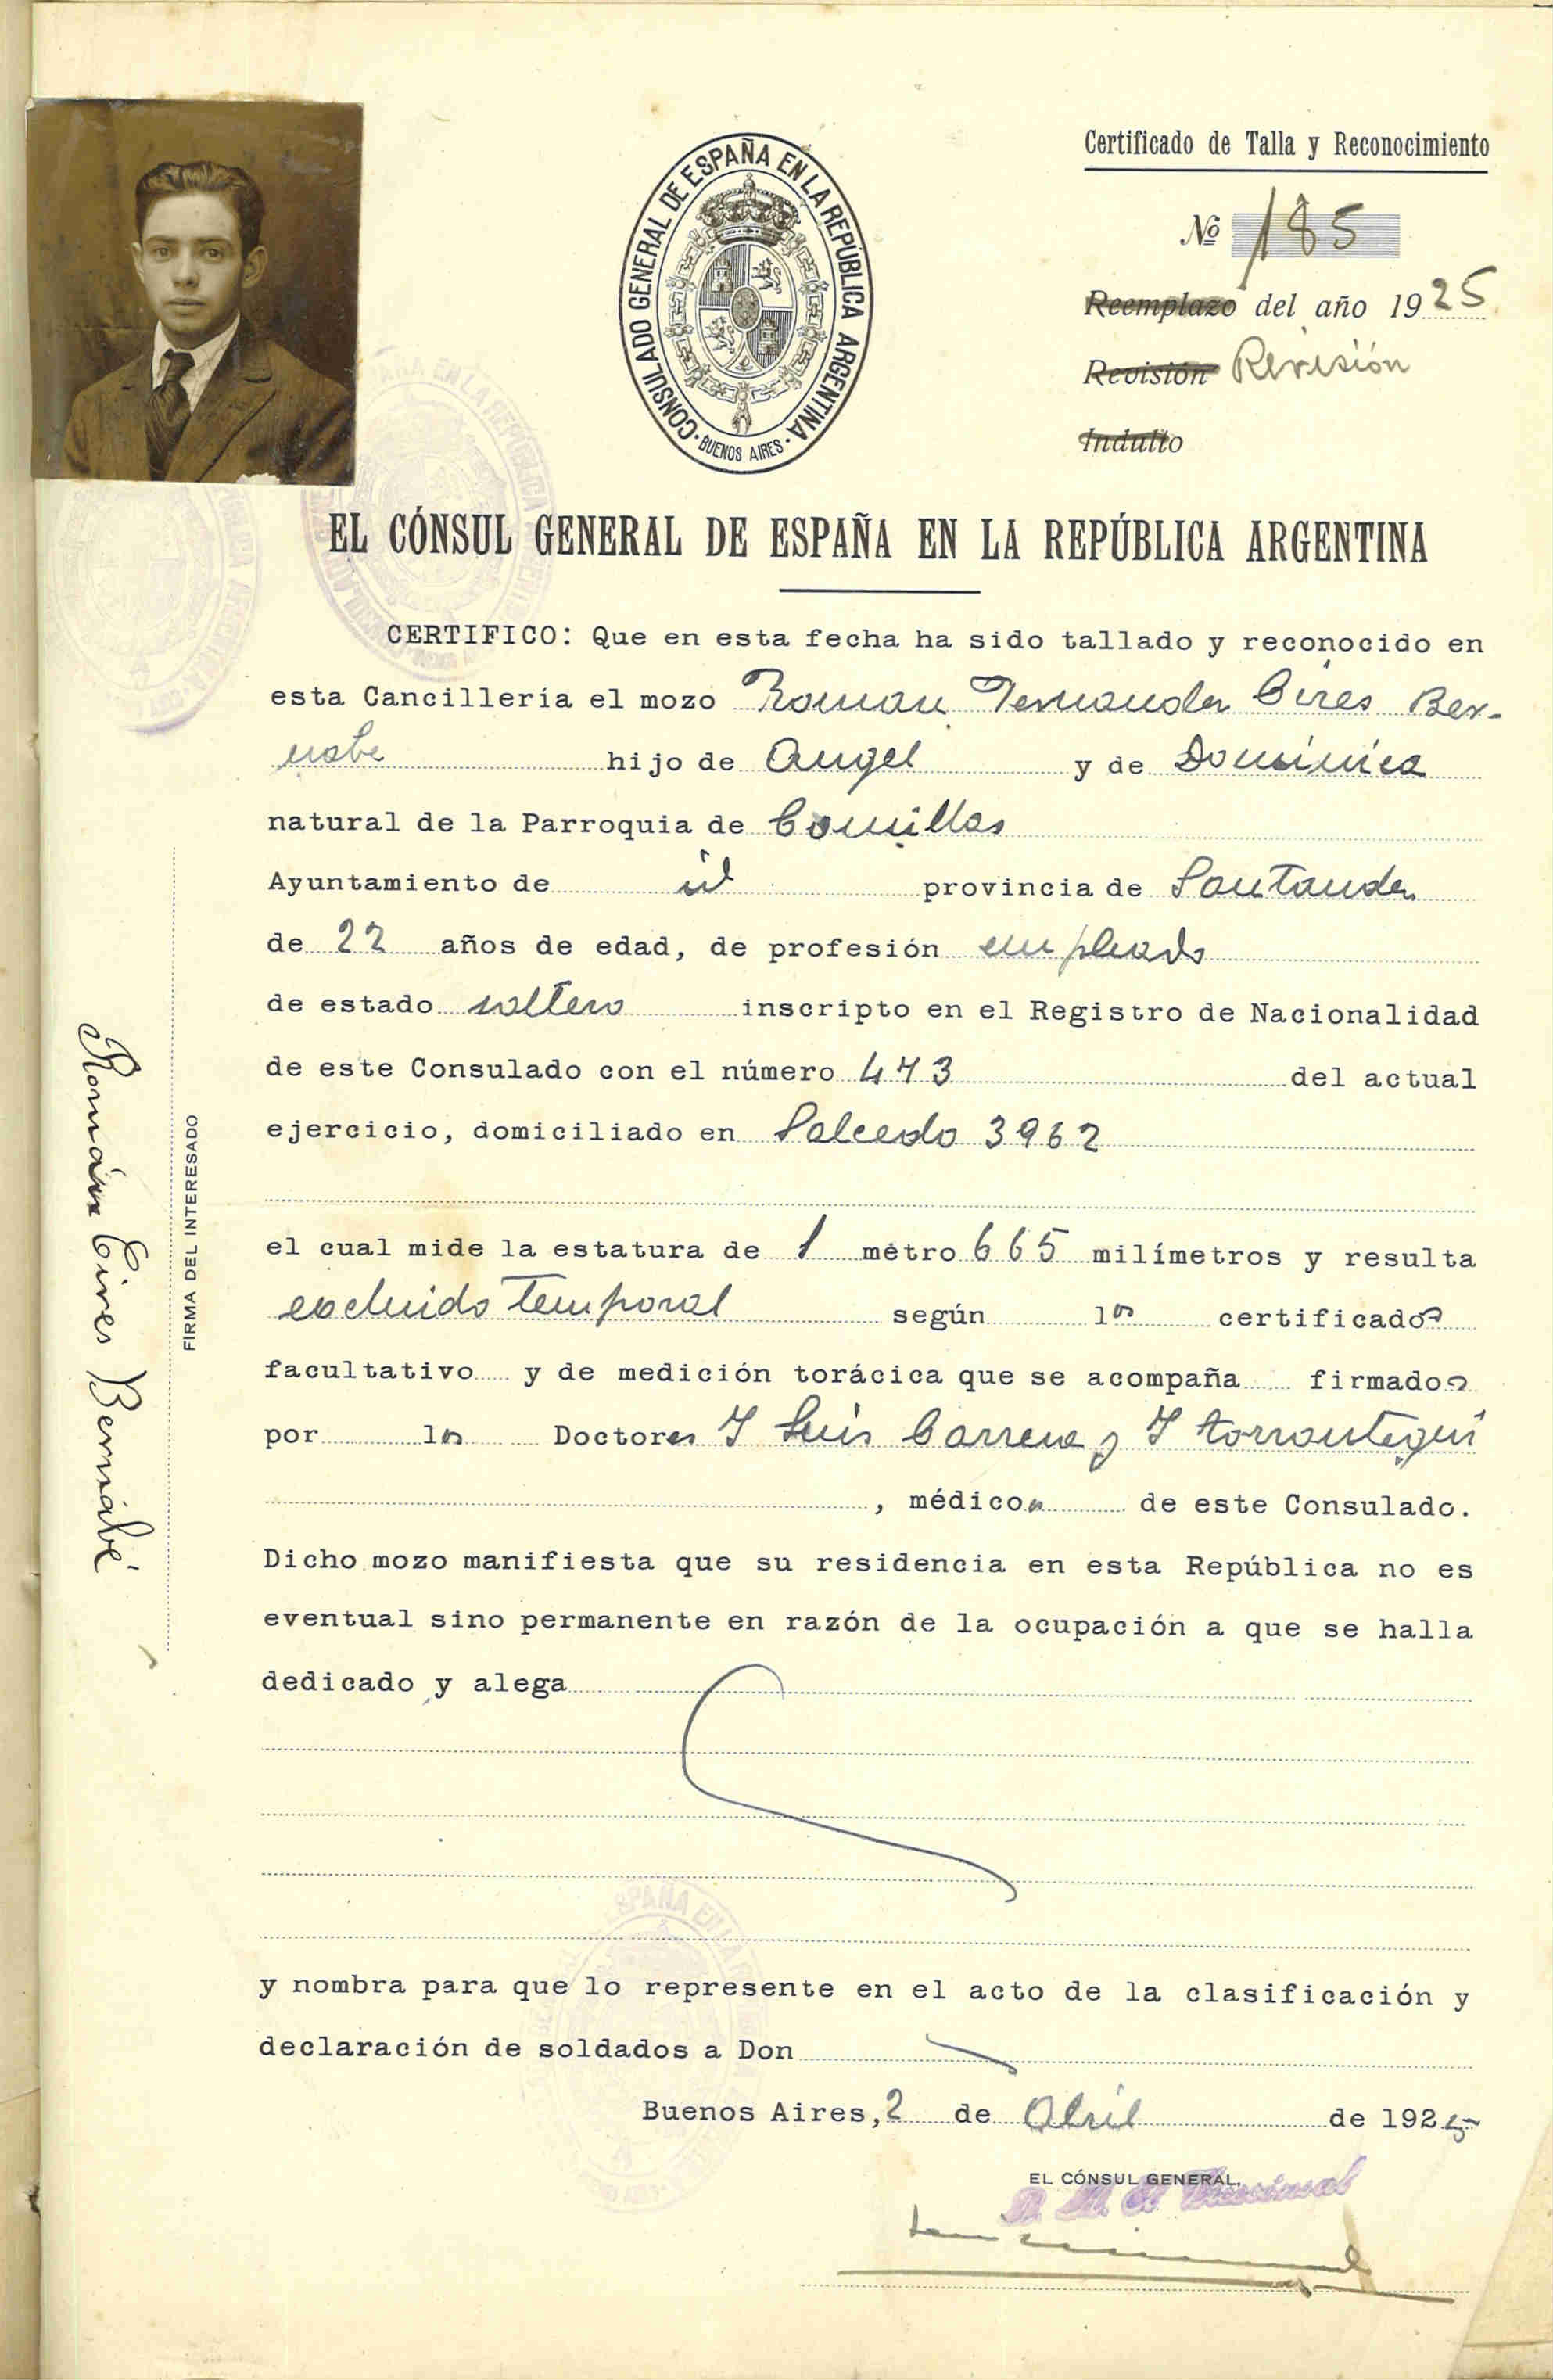 CONSULADO GENERAL DE ESPAÑA EN LA REPÚBLICA ARGENTINA
·BUENOS AIRES·
Certificado de Talla y Reconocimiento
Nº 185
Reemplazo del año 1925
Revisión Revisión
Indulto
EL CÓNSUL GENERAL DE ESPAÑA EN LA REPÚBLICA ARGENTINA
CERTIFICO: Que en esta fecha ha sido tallado y reconocido en
esta Cancillería el mozo Roman Fernandez Cires Ber-
nabe hijo de Angel y de Dominica
natural de la Parroquia de Comillas
Ayuntamiento de id provincia de Santander
de 22 años de edad, de profesión empleado
de estado soltero inscripto en el Registro de Nacionalidad
de este Consulado con el número 473 del actual
ejercicio, domiciliado en Salcedo 3962
el cual mide la estatura de 1 metro 665 milímetros y resulta
excluido temporal según los certificados
facultativo y de medición torácica que se acompaña firmados
por los Doctores Luis Carrena y
, médicos de este Consulado.
Dicho mozo manifiesta que su residencia en esta República no es
eventual sino permanente en razón de la ocupación a que se halla
dedicado y alega
y nombra para que lo represente en el acto de la clasificación y
declaración de soldados a Don
Buenos Aires, 2 de Abril de 1925
EL CÓNSUL GENERAL,
FIRMA DEL INTERESADO
Román Cires Bernabé